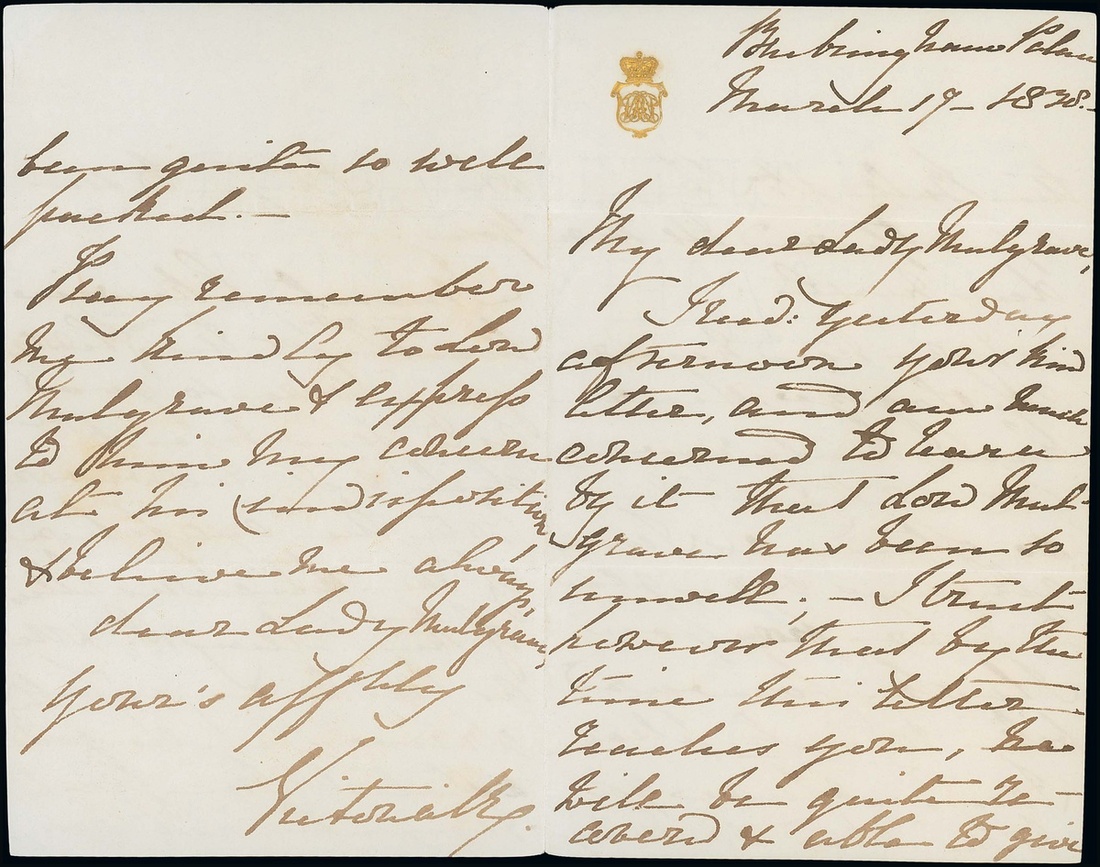 Buckingham Palace
March 17 - 1858. -
My dear Lady Mulgrave,
I recd: yesterday
afternoon your kind
letter, and am much
concerned to learn
by it that Lord Mul-
grave has been so
unwell; - I trust
however that by the
time this letter
reaches you, he
will be quite re-
covered & able to give
been quite so well
packed. -
Pray remember
me kindly to Lord
Mulgrave & express
to him my concern
at his indisposition
& believe me always,
dear Lady Mulgrave,
your's affly
Victoria R.